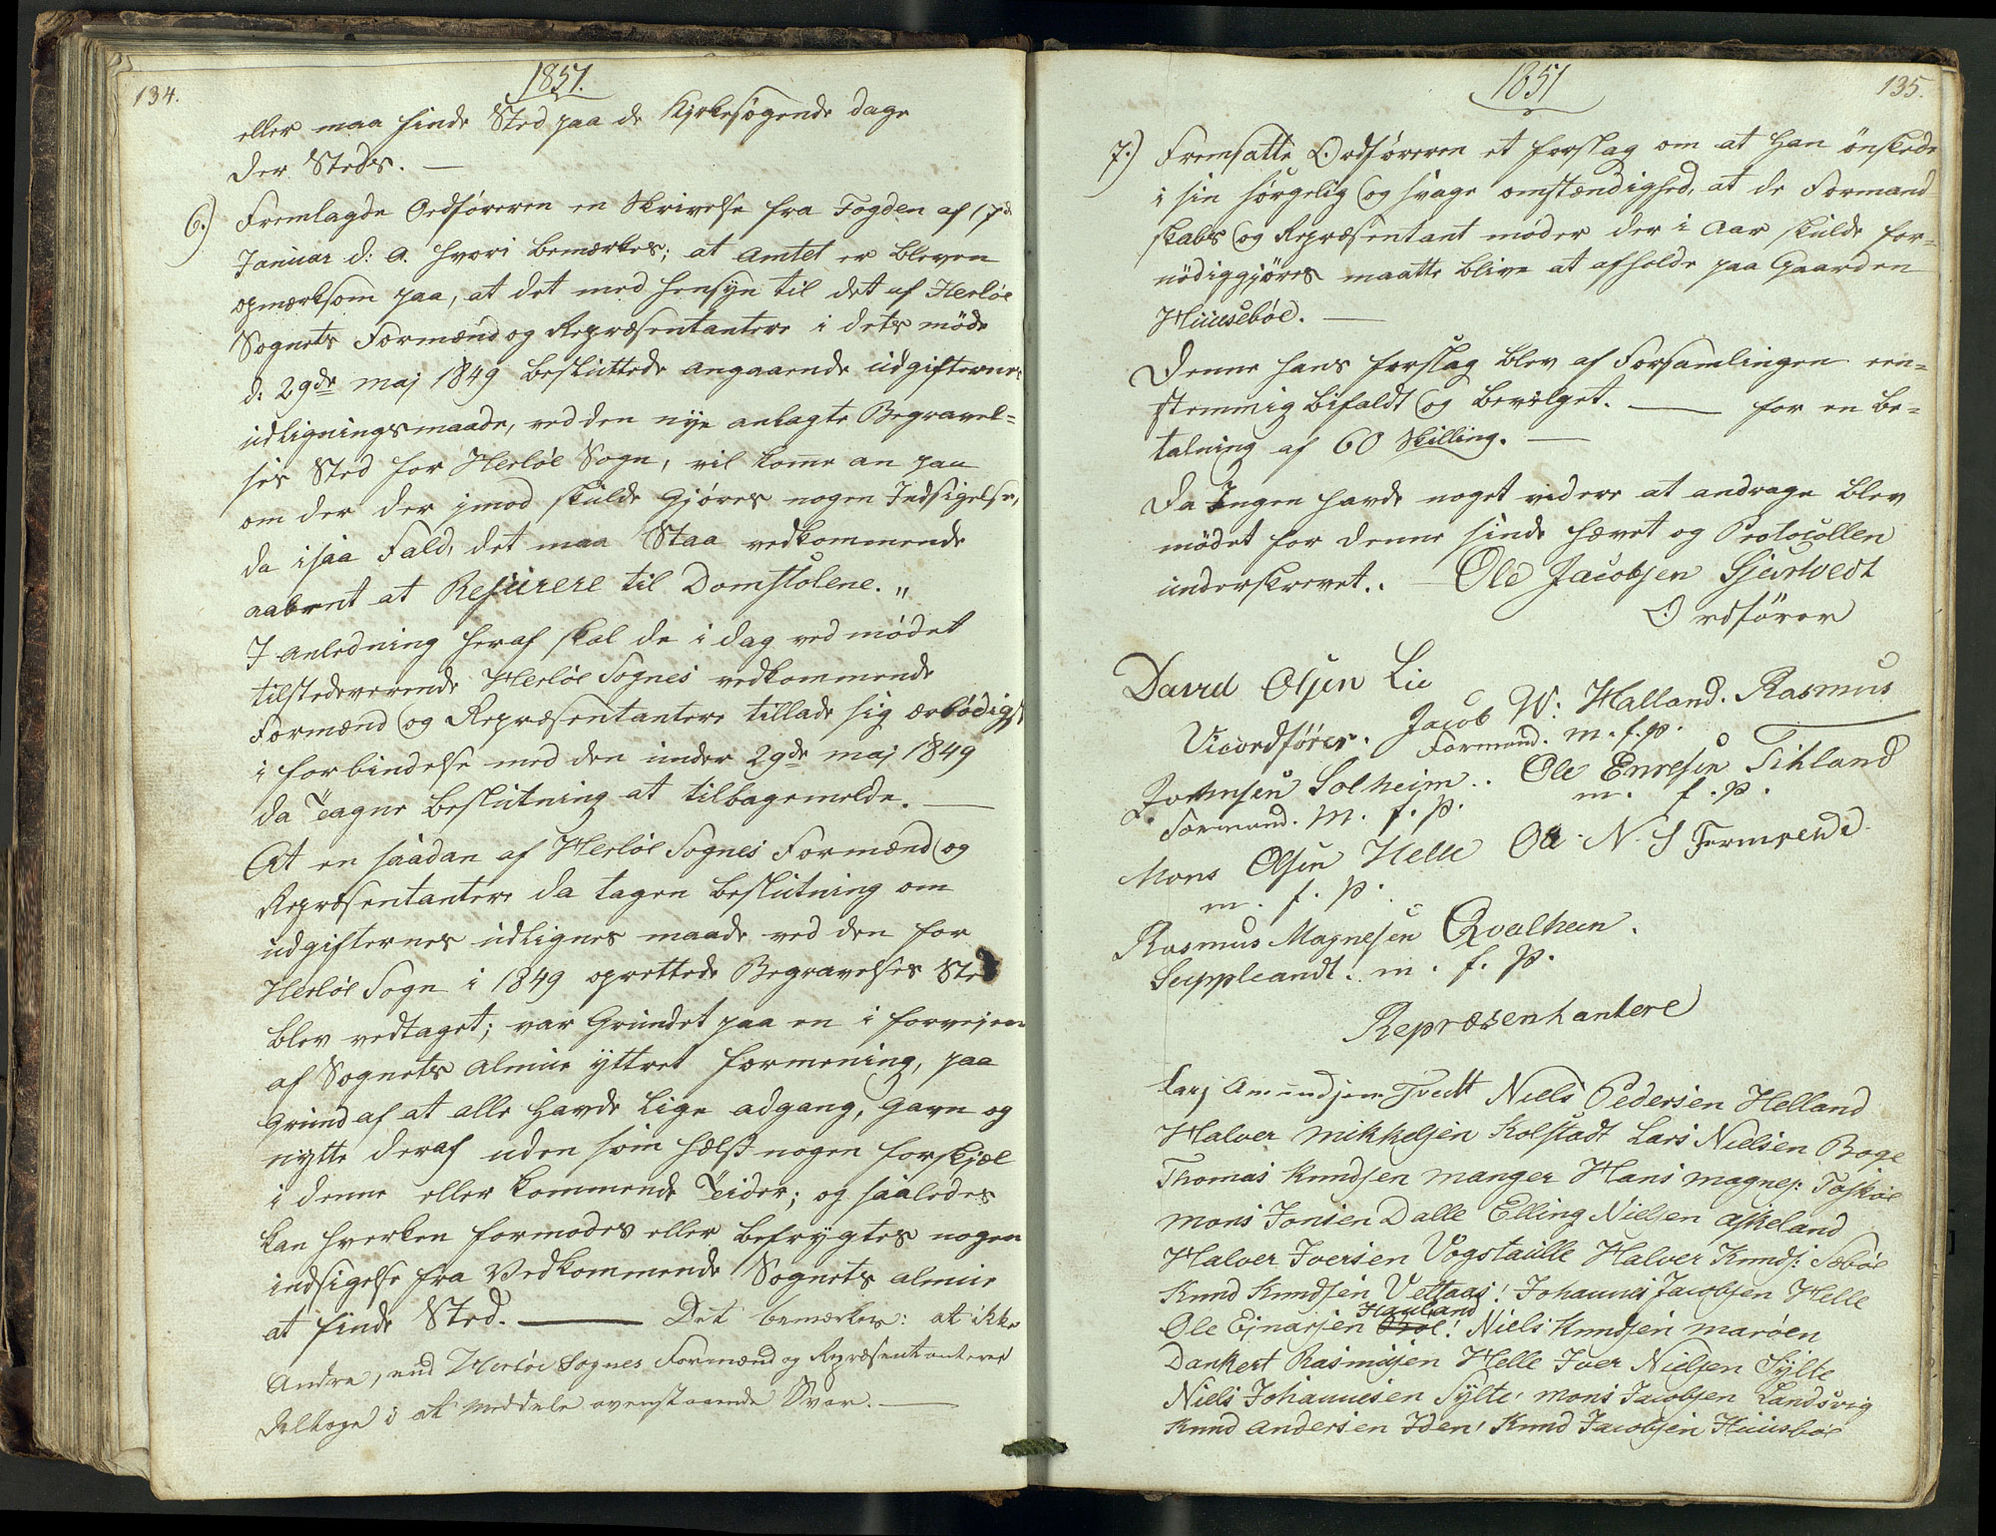 134.
1851.
eller maa finde Sted paa de Kirkesøgende dage
der Steds. —
6.) Fremlagde Ordføreren en Skrivelse fra Fogden af 17d
Januar d: A. hvori bemærkes; at Amtet er bleven
opmærksom paa, at det med hensyn til det af Herløe
Sognets Formænd og Repræsentantere i dets møde
d: 29de maj 1849 besluttede angaaende udgifternes
udligningsmaade, ved den nye anlagte Begravel=
ses Sted for Herløe Sogn, vil kome an paa
om der der imod skulde gjøres nogen Indsigelse,
da isaa Fald, det maa Staa vedkommende
aabent at Resurere til Domstolene. "
I anledning heraf skal de i dag ved mødet
tilstedeverende Herløe Sognes vedkommende
Formænd og Repræsentantere tillade sig ærbødigst
i forbindelse med den under 29de maj 1849
da Teagne beslutning at tilbagemelde. —
At en saadan af Herløe Sognes Formænd og
Repræsentantere da tagen beslutning om
udgifternes udlignes maade ved den for
Herløe Sogn i 1849 oprettede Begravelses Sted
blev vedtaget; var Grundet paa en i forveien
af Sognets Almue yttret formening, paa
Grund af at alle havde lige adgang, gavn og
nytte deraf uden som hælst nogen forskjæl
i denne eller kommende Teider; og saaledes
kan hverken formodes eller befrygtes nogen
indsigelse fra Vedkommende Sognets almue
at finde Sted. — Det bemærkes: at ikke
Andre, end Herløe Sognes Formænd og Repræsentantere
deltoge i at meddele ovenstaaende Svar. —
1851
135.
7.) Fremsatte Ordføreren et forslag om at han önskede
i sin sørgelig og svage omstændighed, at de Formand
skabs og Repræsentant møder der i Aar skulde for=
nödiggjøres maatte blive at afholde paa Gaarden
Huusebøe. —
Denne hans forslag blev af Forsamlingen een=
stemmig bifaldt og Bevilget. — for en be=
talning af 60 Skilling. —
Da Ingen havde noget videre at andrage blev
mödet for denne sinde hævet og Protocollen
underskrevet. . Ole Jacobsen Gjertvedt
Ordförer
David Olsen Lie
Viceordfører. Jacob W: Halland. Rasmus
Formand. m. f. p.
Johnsen Solheim. . Ole Ennesen Tihland
Formand. m. f. p. m. f. p.
Mons Olsen Helle Ole N. S
m. f. p.
Rasmus Magnesen Qvalheim.
Suppleandt. m. f. p.
Repræsentantere
Lars Amundsen Tvedt Niels Pedersen Helland
Halver Mikkelsen Kolstadt Lars Nielsen Boge
Thomas Knudsen Manger Hans Magnes: Toskøe
Mons Jonsen Dalle Elling Nielsen Askeland
Halver Iversen Vogstaulle Halver Knuds: Sæbøe
Knud Knudsen Vettaas! Johannes Jacobsen Helle
Hauland
Ole Ejnarsen Niels Knudsen Marøen
Dankert Rasmusen Helle Iver Nielsen Sylte
Niels Johannesen Sylte, Mons Jacobsen Landsvig
Knud Andersen Iden, Knud Jacobsen Huusbøe